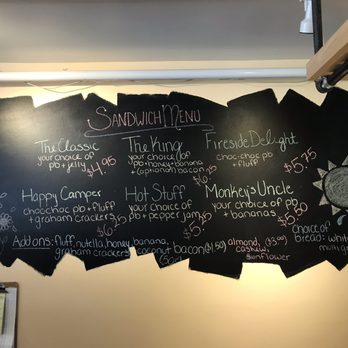 SANDWICH MENU
The Classic
your choice of
pb + jelly
$4.95
The King
your choice of
pb + honey + banana
+ (optional) bacon
Fireside Delight
choc-choc pb
+ fluff
$5.75
Happy Camper
choc choc pb + fluff
+ graham crackers
Hot Stuff
your choice of
pb + pepper jam
Monkey's Uncle
your choice of pb
+ bananas
$5.50
Add ons: fluff, nutella, honey, banana,
graham crackers, coconut
bacon ($1.50)
almond, ($3.00)
cashew,
sunflower
choice of
bread: white
multi